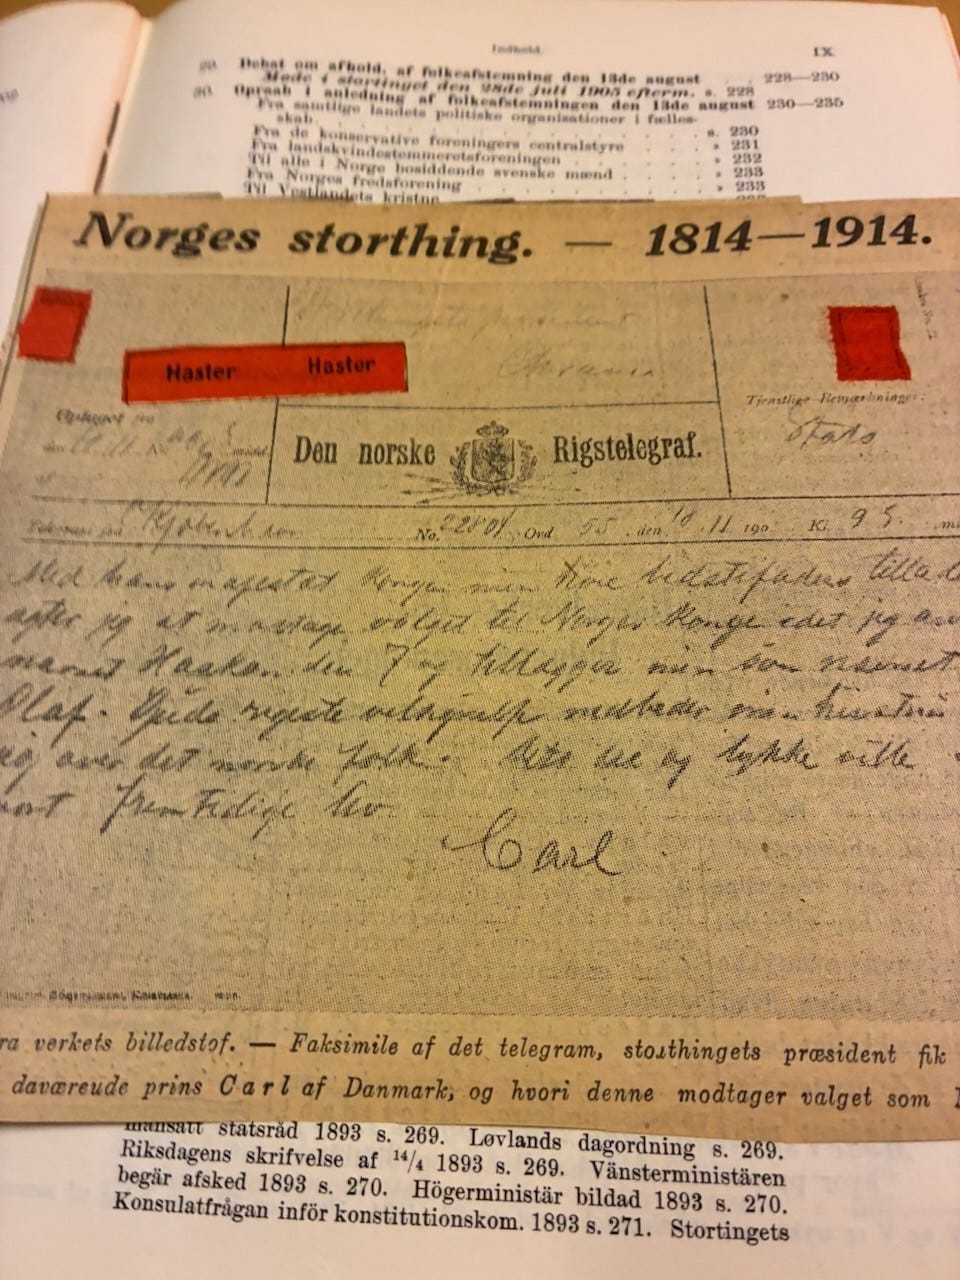 Indhold. IX
29. Debat om afhold. af folkeafstemning den 13de august . . 228—230
Møde i stortinget den 28de juli 1905 efterm. s. 228
30. Opraab i anledning af folkeafstemningen den 13de august 230—235
Fra samtlige landets politiske organisationer i fælles-
skab . . . . . . . . . s. 230
Fra de konservative foreningers centralstyre . . . . » 231
Fra landskvindestemmeretsforeningen . . . . . » 232
Til alle i Norge bosiddende svenske mænd . . . . » 233
Fra Norges fredsforening . . . . . . . » 233
Til Vestlandets kristne
Norges storthing. — 1814—1914.
Haster Haster
Storthingets præsident
Tjenstlige Bemærkninger:
Stats
Optaget fra
Den norske Rigstelegraf.
Kjøbenhavn No. 22801 Ord 55 den 18 11 190 Kl. 9 5
Med hans majestæt kongen min kjære bedstefaders tilla
agter jeg at modtage valget til Norges konge idet jeg an
navnet Haakon den 7 og tillægger min søn navnet
Olaf.
over det norske folk. og lykke ville
vort fremtidige liv
Carl
ra verkets billedstof. — Faksimile af det telegram, storthingets præsident fik
daværeude prins Carl af Danmark, og hvori denne modtager valget som
mansatt statsråd 1893 s. 269. Løvlands dagordning s. 269.
Riksdagens skrifvelse af 14/4 1893 s. 269. Vänsterministären
begär afsked 1893 s. 270. Högerministär bildad 1893 s. 270.
Konsulatfrågan inför konstitutionskom. 1893 s. 271. Stortingets